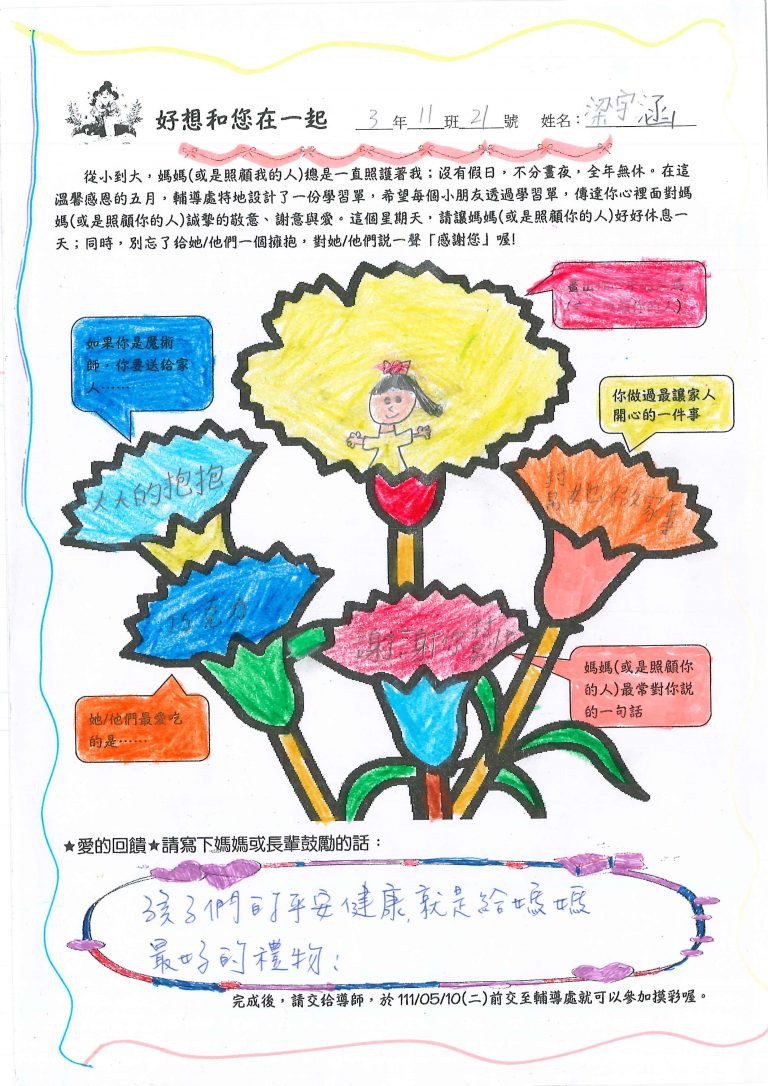 好想和您在一起 3年11班21號 姓名：梁宇涵
從小到大，媽媽(或是照顧我的人)總是一直照護著我；沒有假日，不分晝夜，全年無休。在這
溫馨感恩的五月，輔導處特地設計了一份學習單，希望每個小朋友透過學習單，傳達你心裡面對媽
媽(或是照顧你的人)誠摯的敬意、謝意與愛。這個星期天，請讓媽媽(或是照顧你的人)好好休息一
天；同時，別忘了給她/他們一個擁抱，對她/他們說一聲「感謝您」喔!
如果你是魔術
師，你要送給家
人……
你做過最讓家人
開心的一件事
大大的抱抱
幫她做家事
巧克力
謝謝你幫忙
她/他們最愛吃
的是……
媽媽(或是照顧你
的人)最常對你說
的一句話
★愛的回饋★請寫下媽媽或長輩鼓勵的話：
孩子們的平安健康,就是給媽媽
最好的禮物；
完成後，請交給導師，於111/05/10(二)前交至輔導處就可以參加摸彩喔。